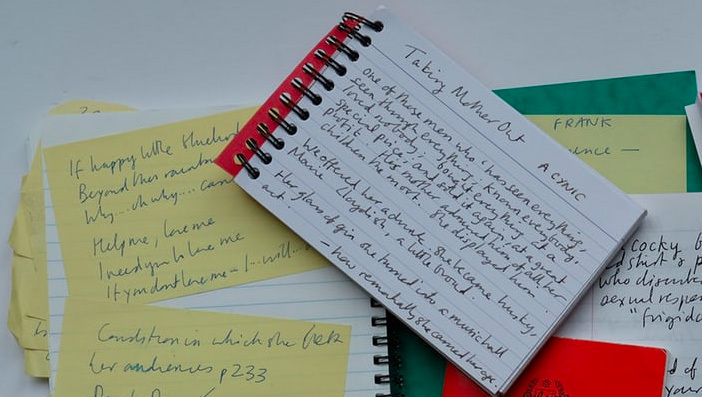 Taking Mother Out
A CYNIC
One of those men who 'has seen everything,
seen through everything, known everybody,
loved nobody, bought everything at a
special price, and sold it again at a great
profit'. His mother admired him of all her
children the most. She displayed him
We offered her a drink. She became husky,
Marie Lloydish, a little broad.
Her glass of gin she turned into a music hall
act
– how remarkably she carried her age
If happy little bluebirds
Beyond the rainbow
Why... oh why... can
Help me, love me
I need you to love me
If you don't love me – I... will...
Condition in which she
her audiences p233
FRANK
cocky
who
sexual
"frigid